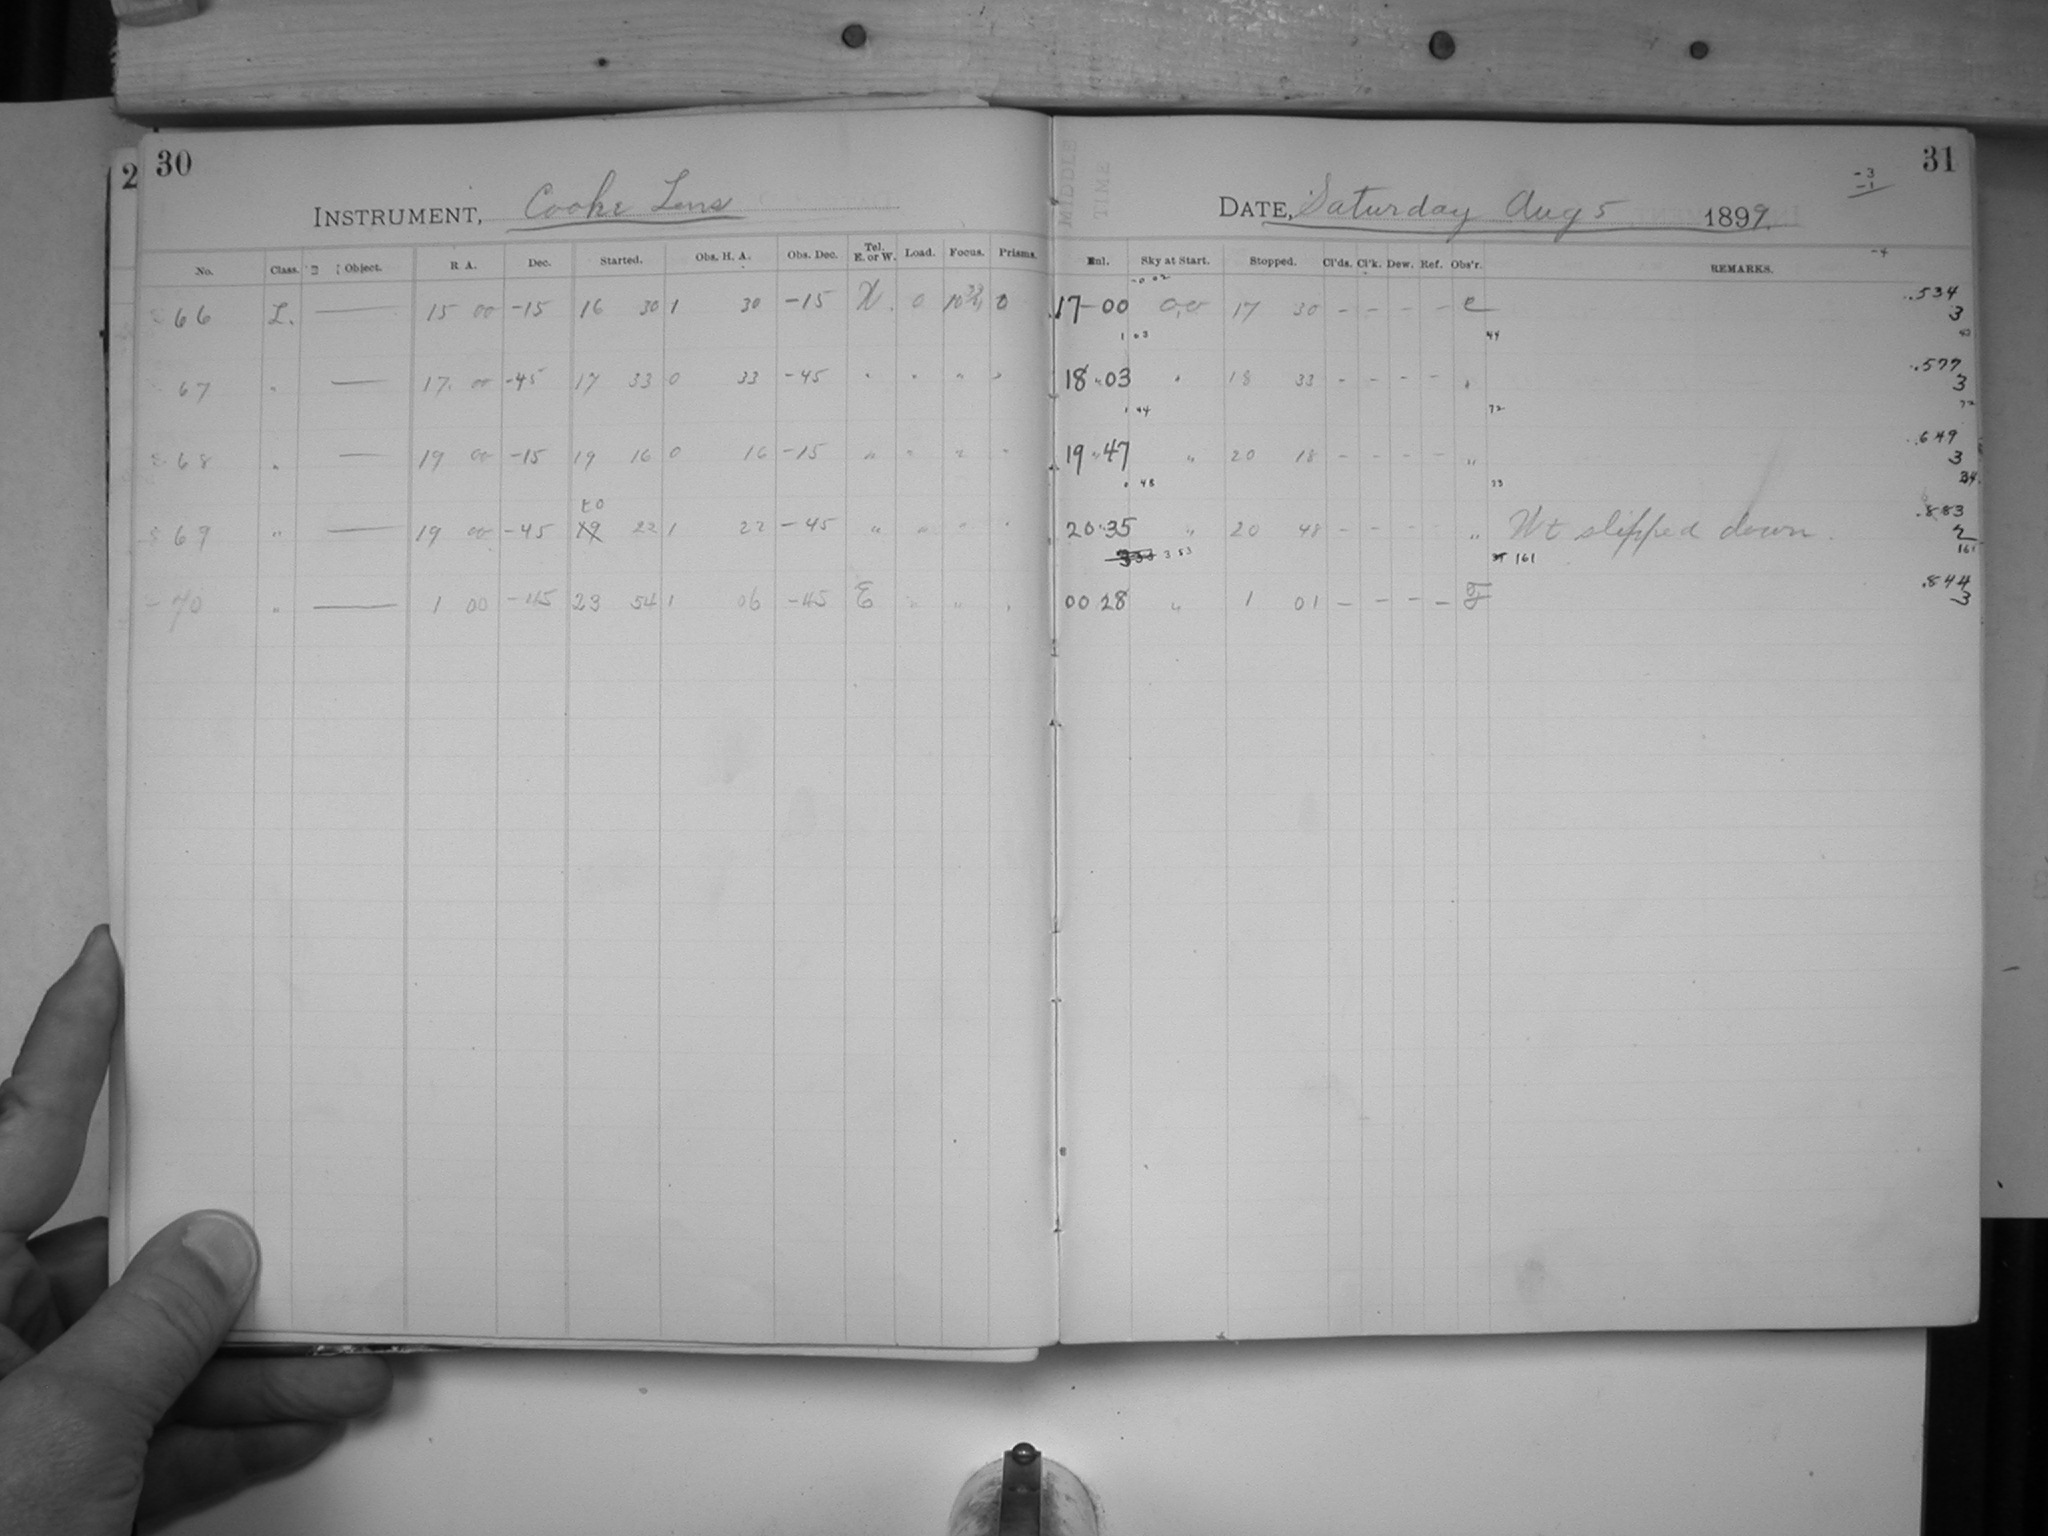 30
31
2
-3
-1
INSTRUMENT, Cooke Lens
DATE, Saturday Aug 5 1899.
-4
No. Class. Object. R A. Dec. Started. Obs. H. A. Obs. Dec. Tel. E. or W. Load. Focus. Prisms. Enl. Sky at Start. Stopped. Cl'ds. Cl'k. Dew. Ref. Obs'r. REMARKS.
MIDDLE
TIME
-0 02
66 L. — 15 00 -15 16 30 1 30 -15 W. 0 0 17-00 0,0 17 30 - - - - e .534
3
1 03 44
67 " — 17. 00 -45 17 33 0 33 -45 " " " " 18 " 03 " 18 33 - - - - " .577
3
1 44 72 72
68 " — 19 00 -15 19 16 0 16 -15 " " " " 19 " 47 " 20 18 - - - - " .649
3
0 48 33 34
20
69 " — 19 00 -45 19 22 1 22 -45 " " " " 20 " 35 " 20 48 - - - - " Wt slipped down. .883
2
3 53 3 53 161 161
70 " — 1 00 -45 23 54 1 06 -45 E " " " 00 28 " 1 01 - - - - F .844
3